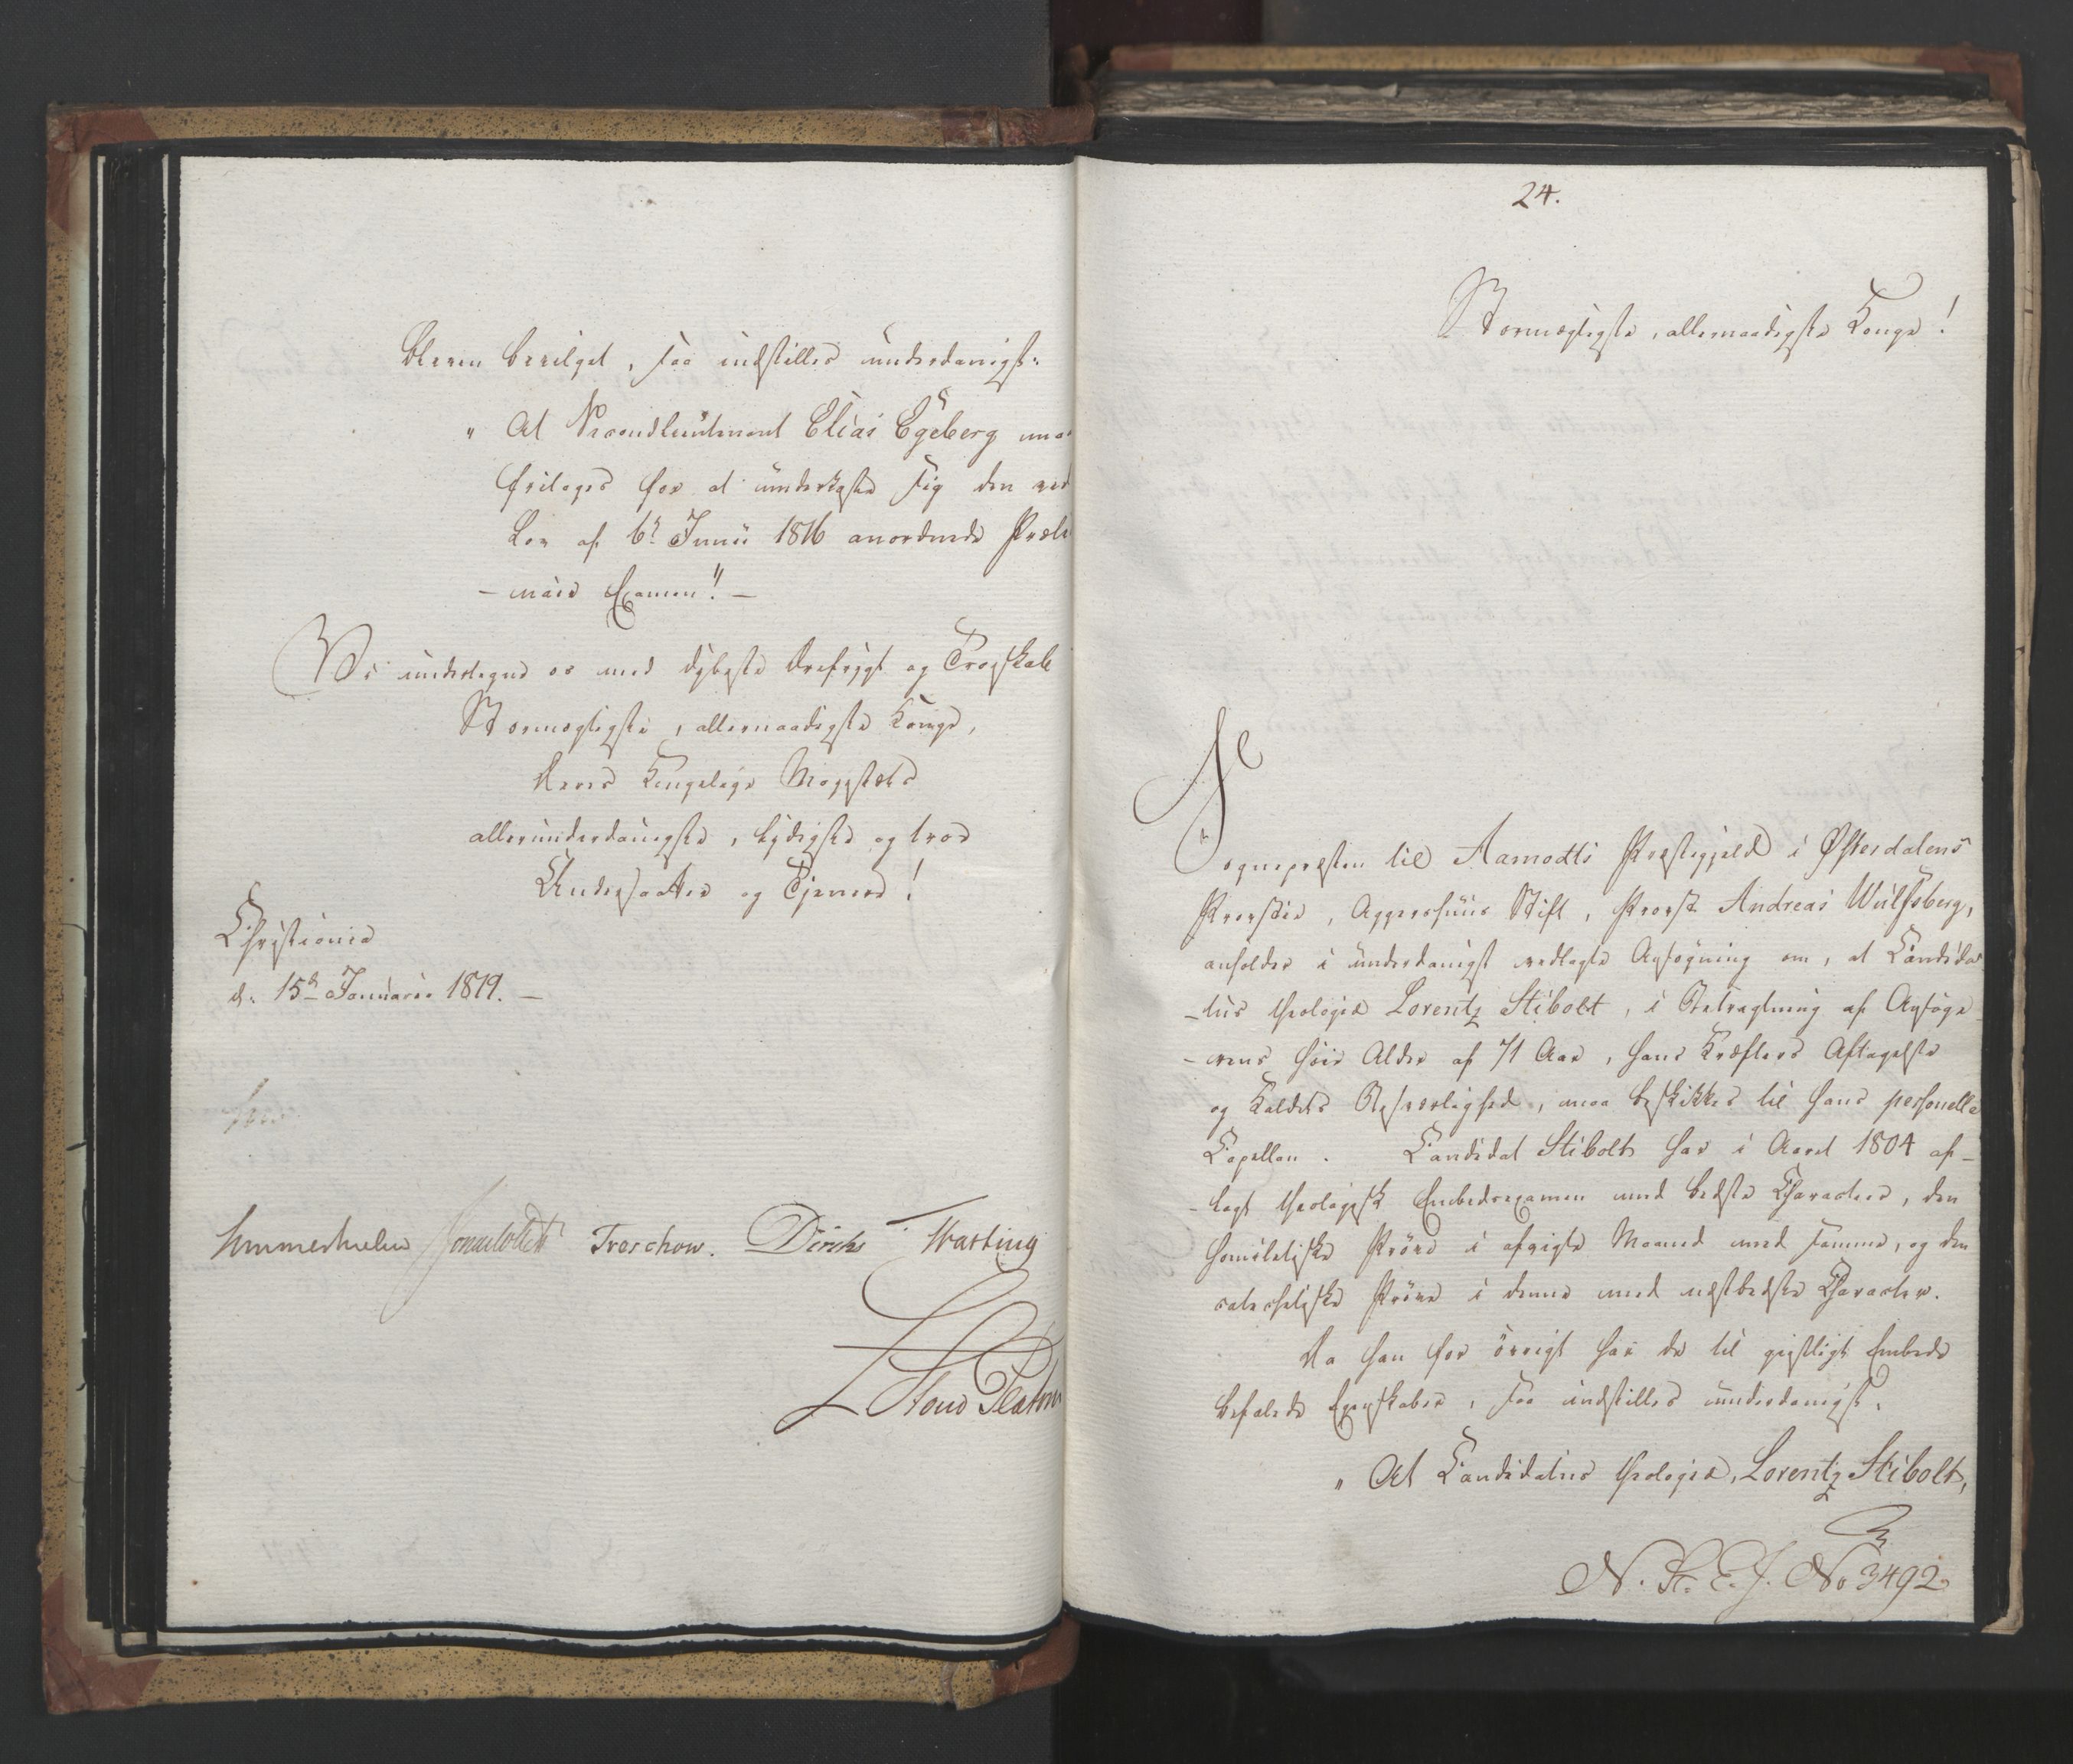 bleven bevilget, saa indstilles underdanigst:
" At Secondlieutenant Elias Egeberg maa
fritages for at underkaste sig den ved
Lov af 6te Junii 1816 anordnede Præli
- minair Examen". —
Vi undertegne os med dybeste Ærefrygt og Troeskab
Stormægtigste, allernaadigste Konge,
Deres Kongelige Majestæts
allerunderdanigste, lydigste og troe
Undersaatter og Tjenere!
Christiania
d: 15de Januarii 1819. —
Sommerhielm Treschow. Diriks Hasting
24.
Stormægtigste, allernaadigste Konge!
Sognepræsten til Aamodts Præstegjeld i Østerdalens
Provstie, Aggershuus Stift, Provst Andreas Wulfsberg,
anholder i underdanigst vedlagte Ansøgning om, at Candida
- tus theologiæ Lorentz Stibolt, i Betragtning af Ansøge
- rens høie Alder af 71 Aar, hans Kræfters Aftagelse
og Kaldets Besværlighed, maa beskikkes til hans personelle
Capellan. Candidat Stibolt har i Aaret 1804 af-
- lagt theologisk Embedsexamen med bedste Characteer, den
homiletiske Prøve i afvigte Maaned med samme, og den
catechetiske Prøve i denne med næstbedste Character.
Da han for øvrigt har de til geistligt Embede
befalede Egenskaber, saa indstilles underdanigst:
" At Candidatus theologiæ, Lorentz Stibolt,
N. St. E. J. No 3492